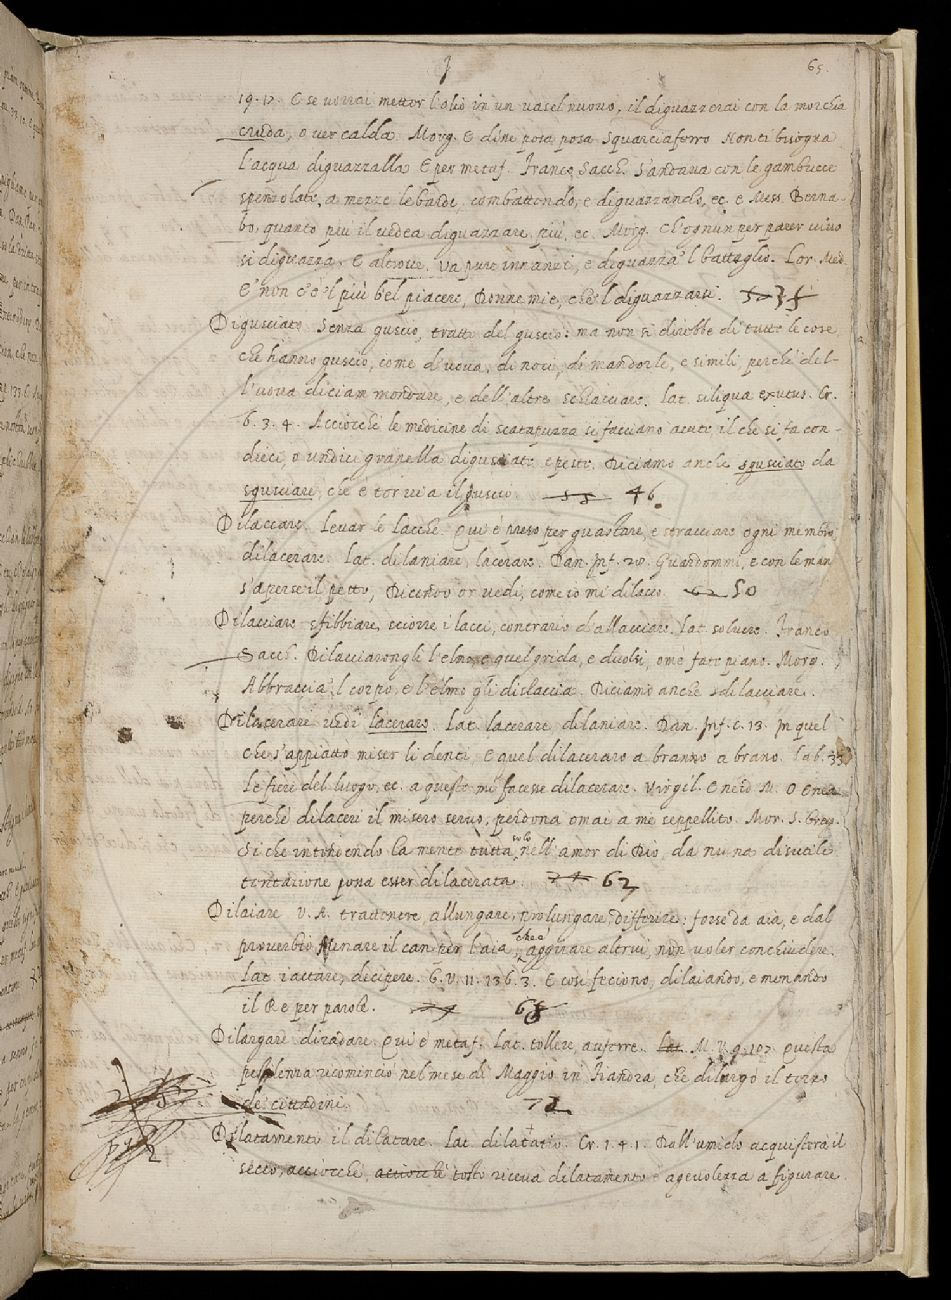 65.
19. 17. E se vorrai metter l'olio in un vasel nuovo, il diguazzerai con la morchia
cruda, o ver calda. Morg. E dine posa posa Squarciaferro Non ti bisogna
l'acqua diguazzalla E per metaf. Franco Sacch. S'andava con le gambucce
spenzolate, a mezze le barde, combattendo, e diguazzando, ec. e Mess. Berna-
bo, quanto più il vedea diguazzare, più, ec. Morg. Ch'ognun per parer vivo
si diguazza. E altrove. Va pure innanzi, e diguazza 'l battaglio. Lor. Med.
E' non c'è 'l più bel piacere, Donne mie, che 'l diguazzarsi.
Digusciato. Senza guscio, tratto del guscio: ma non si direbbe di tutte le cose
che hanno guscio, come d'uova, di noci, di mandorle, e simili, perche del-
l'uova diciam mondare, e dell'altre schiacciare. Lat. siliqua exutus. Cr.
6. 3. 4. Acciocchè le medicine di scatapuzza si facciano acute il che si fa con
dieci, o undici granella digusciate, e peste. Diciamo anche sgusciato da
sgusciare, che è tor via il guscio. 46
Dilaccare. Levar le lacche. Qui è preso per guastare, e stracciare ogni membro,
dilacerare. Lat. dilaniare, lacerare. Dan. Inf. 28. Guardommi, e con le man
s'aperse il petto, Dicendo or vedi, come io mi dilacco. 50
Dilacciare. sfibbiare, sciorre i lacci, contrario d'allacciare. Lat. solvere. Franco
Sacch. Dilacciarongli l'elmo, e quel grida, e duolsi, omè fate piano. Morg.
Abbraccia 'l corpo, e l'elmo gli dilaccia. Diciamo anche sdilacciare.
Dilacerare vedi lacerare. Lat. lacerare dilaniare. Dan. Inf. c. 13. In quel
che s'appiatto miser li denti, E quel dilaceraro a brano a brano. Lab. 35
le fiere del luogo, ec. a questo mi facesse dilacerare. Virgil. Eneid. M. O Enea
perchè dilaceri il misero servo, perdona omai a me seppellito. Mor. S. Greg.
Si che intendendo la mente tutta, solo nell'amor di Dio, da niuna disutile
tentazione possa esser dilacerata. 62
Dilaiare V. A. trattenere allungare, prolungare differire: forse da aia, e dal
proverbio Menare il can per l'aia, che è aggirare altrui, non voler conchiudere.
Lat. iactare, decipere. G. V. 11. 136. 3. E così feciono, dilaiando, e menando
il Re per parole. 68
Dilargare diradare. Qui è metaf. Lat. tollere, auferre. Lat. M. V. 9. 107. Questa
pestilenza ricominciò nel mese di Maggio in Fiandra, che dilargò il terzo
de' cittadini. 72
Dilatamento il dilatare. Lat. dilatatio. Cr. 1. 4. 1. Dall'umido acquisterà il
secco, acciocchè, acciocchè tosto riceva dilatamento e agevolezza a figurare.